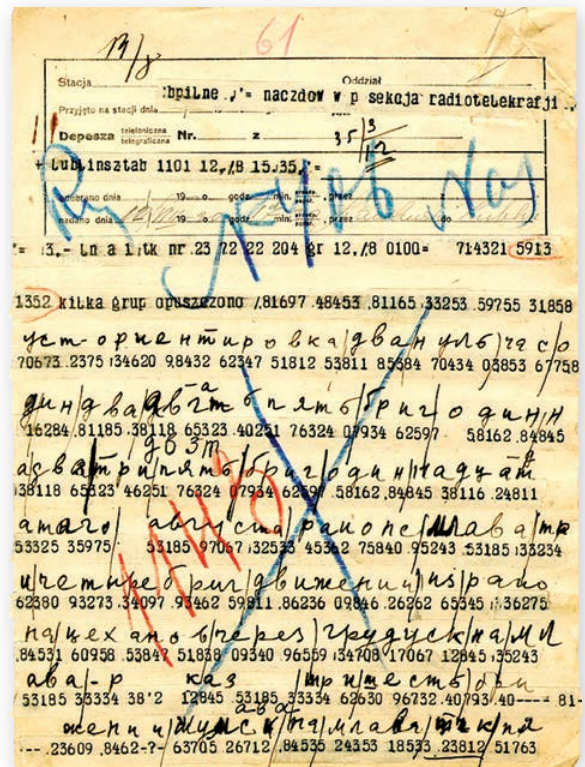 13/8 61
Stacja Oddział
:bpilne ,'= naczdow w p sekcja radiotelekrafji .,
Przyjęto na stacji dnia
Depesza telefoniczna telegraficzna Nr. z 35 3/12
+ Lublinsztab 1101 12,/8 15.35,'=
odebrano dnia 19 o godz. min. , przez
nadano dnia 19 o godz. min. , przez do
'= 13,- tn a i tk nr 23 22 22 204 gr 12,/8 0100= 714321 5913
1352 kilka grup opuszczono /81697 48453 .81165 .33253 .59755 31858
уст-ориентировка/два нуль/часо
70673 .2375 134620 98432 62347 51812 53811 85584 70434 03853 67758
16284 .81185 .38118 65323 .40251 76324 07934 62597 58162 .84845
адва/три/пять/бриг/один/надцат
38118 65323 46251 76324 07934 62597 .58162 .84845 38116 .24811
атаго/ августа/районе/млава/тр
53325 35975 53185 97067 132533 45362 75840 .95243 .53185 133234
и/четыре/бриг/движении/из/райо
62380 93273 .34097 .93462 59811 .86236 09846 .26262 65345 136275
на/цеханов/через/грудуск/на/мл
.84531 60958 .53847 51838 09340 .96559 134708 17067 12845 .35243
ава/-р каз /три/шесть/
53185 33334 38'2 12845 .53185 .33334 62630 .96732 .40793 .40---- 81-
жени и/ /на/млава/
--- .23609 .8462-?- 63705 .26712 .84535 24353 18533 .23812 51763